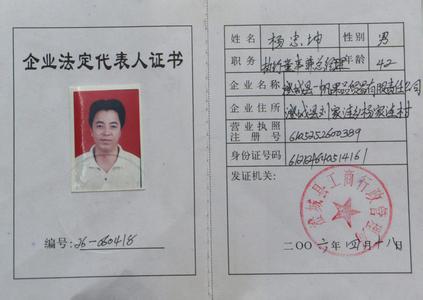 企业法定代表人证书
编号:26-060418
姓名 杨忠坤 性别 男
职务 执行董事兼总经理 年龄 42
企业名称 澄城县一帆果品贸易有限责任公司
企业住所 澄城县刘家洼乡杨家洼村
营业执照
注册号 6105252600389
身份证号码
发证机关:
澄城县工商行政管理局
二00六年四月十八日